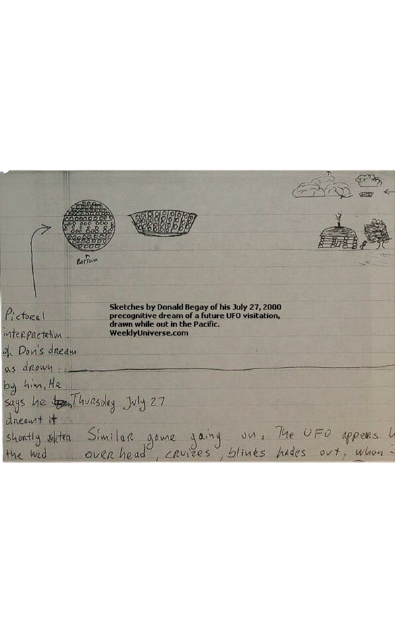 Bottom
Sketches by Donald Begay of his July 27, 2000
precognitive dream of a future UFO visitation,
drawn while out in the Pacific.
WeeklyUniverse.com
Pictoral
interpretation
of Don's dream
as drawn
by him, He
says he
dreamt it
shortly after
the Wed
Thursday July 27
Similar game going on. The UFO appers
overhead, cruizes, blinks fades out, when